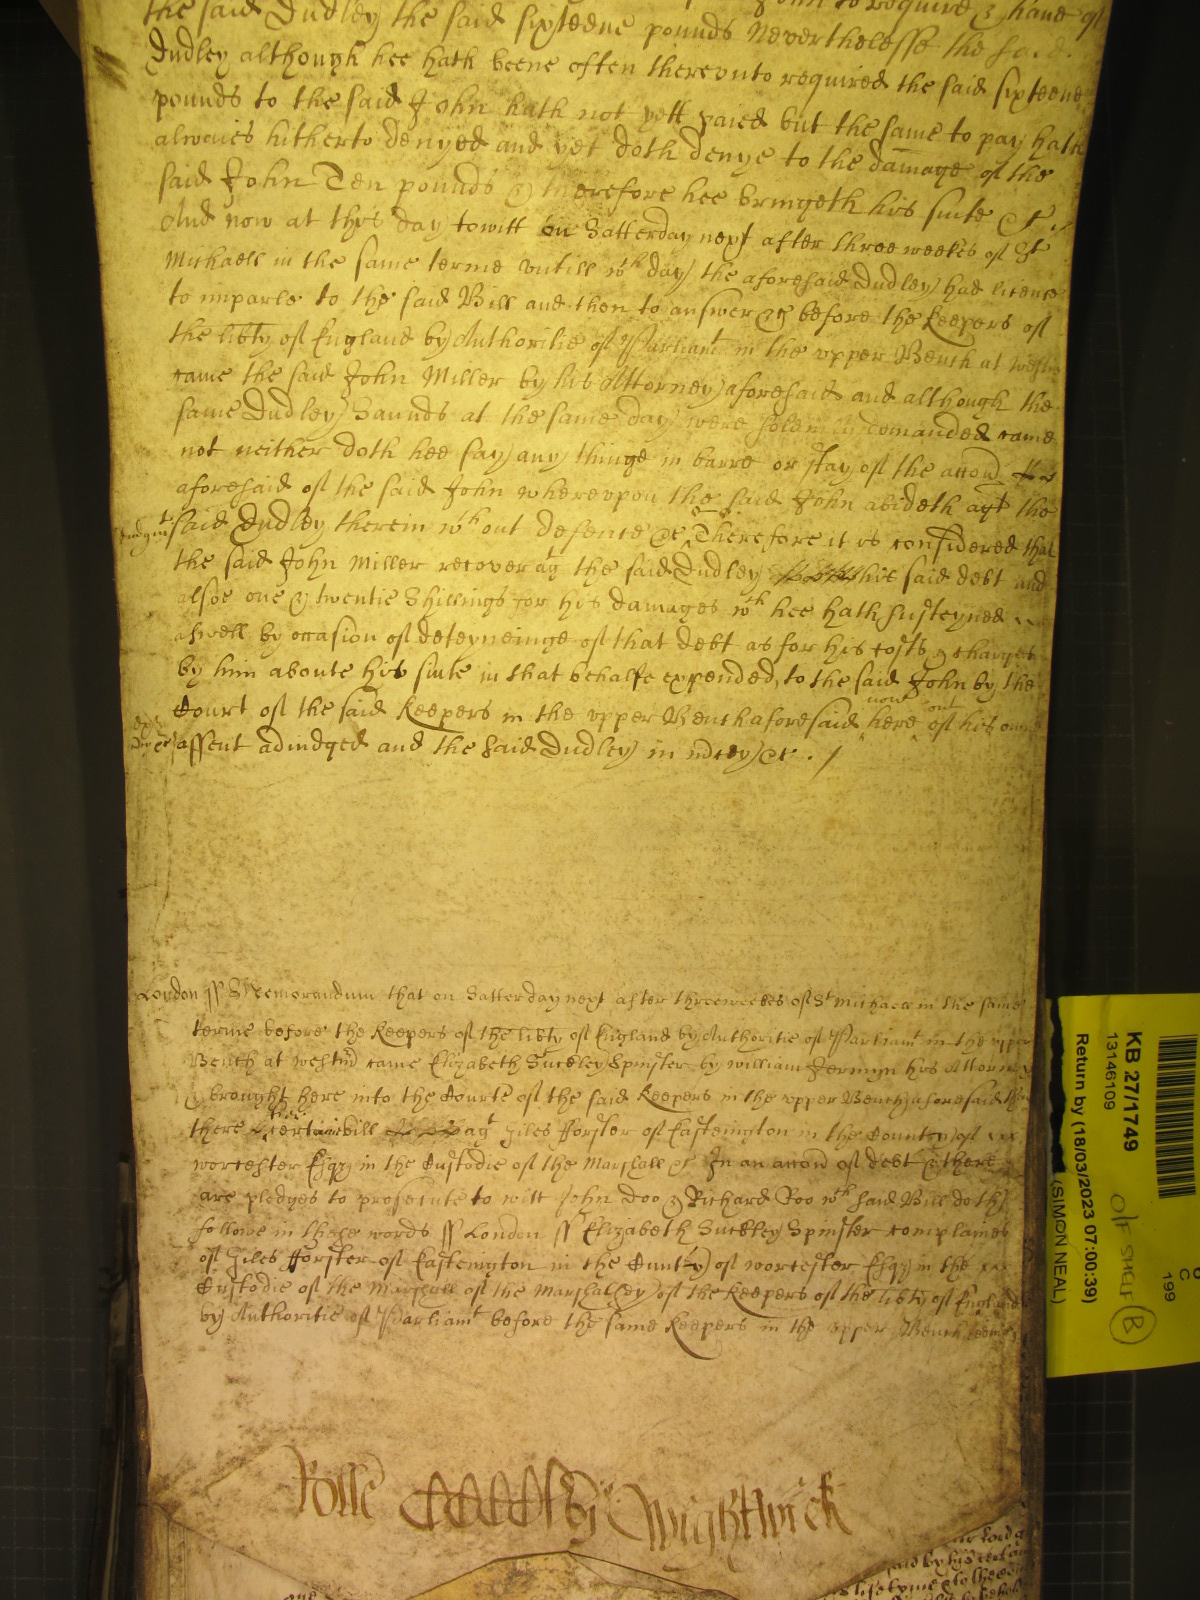 the said Dudley the said sixteene pounds Neverthelesse the said
Dudley although hee hath beene often therevnto required the said sixteene
pounds to the said John hath not yett paied but the same to pay hath
alwaies hitherto denyed and yet doth denye to the damage of the
said John Ten pounds & therefore hee bringeth his suite &c.
And now at this day towitt on Satterday next after three weekes of St
Michaell in the same terme vntill wch day the aforesaid Dudley had licence
to imparle to the said Bill and then to answer &c before the Keepers of
the libty of England by Authoritie of Parliamt in the vpper Bench at
came the said John Miller by his Attorney aforesaid and although the
same Dudley Saunds at the same day were solemnly comanded came
not neither doth hee say any thinge in barre or stay of the accon
aforesaid of the said John wherevpon the said John abideth agt the
Judgmt said Dudley therein wthout defence &c Therefore it is considered that
the said John Miller recover agt the said Dudley his said debt and
alsoe one & twentie Shillings for his damages wch hee hath susteyned
aswell by occasion of deteyneinge of that debt as for his costs & charges
by him aboute his suite in that behalfe expended, to the said John by the
Court of the said Keepers in the vpper Bench aforesaid now here out of his owne
assent adiudged and the said Dudley in mcey &c. /
London ss Memorandum that on Satterday next after three weekes of St Michaell in the same
terme before the Keepers of the libty of England by Authoritie of Parliamt in the vpper
Bench at Westmr came Elizabeth Suckley Spinster by William Jermyn his Attorney
& brought here into the Courte of the said Keepers in the vpper Bench aforesaid then
there her certaine bill agt Giles Forster of Eastington in the County of
Worcester Esqr in the Custodie of the Marshall &c In an accon of debt & there
are pledges to prosecute to witt John Doo & Richard Roo wch said Bill doth
followe in these words ss London ss Elizabeth Suckley Spinster complaines
of Giles Forster of Eastington in the County of Worcester Esqr in the
Custodie of the Marshall of the Marshalsey of the Keepers of the libty of England
by Authoritie of Parliamt before the same Keepers in the vpper Bench beeing
Rolle Wightwick
KB 27/1749
13146109
Return by (18/03/2023 07:00:39)
(SIMON NEAL)
C
199
O/F SHELF B